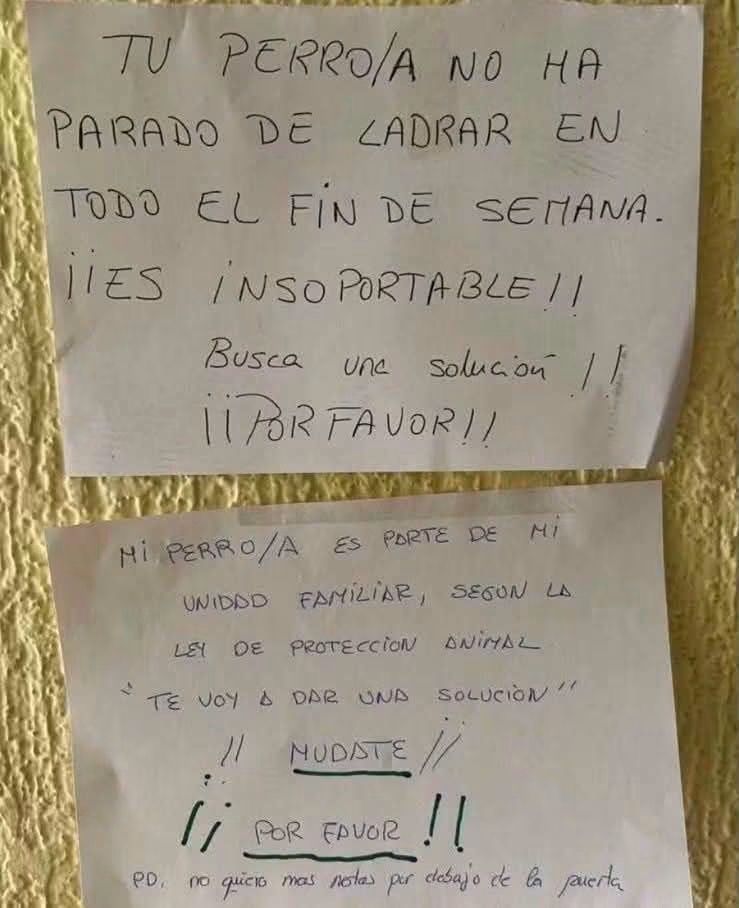 TU PERRO/A NO HA
PARADO DE LADRAR EN
TODO EL FIN DE SEMANA.
¡¡ES INSOPORTABLE!!
Busca una solución!!
¡¡POR FAVOR!!
MI PERRO/A ES PARTE DE MI
UNIDAD FAMILIAR, SEGUN LA
LEY DE PROTECCION ANIMAL
"TE VOY A DAR UNA SOLUCIÓN"
¡¡ MUDATE ¡¡
¡¡ POR FAVOR !!
PD. no quiero mas notas por debajo de la puerta